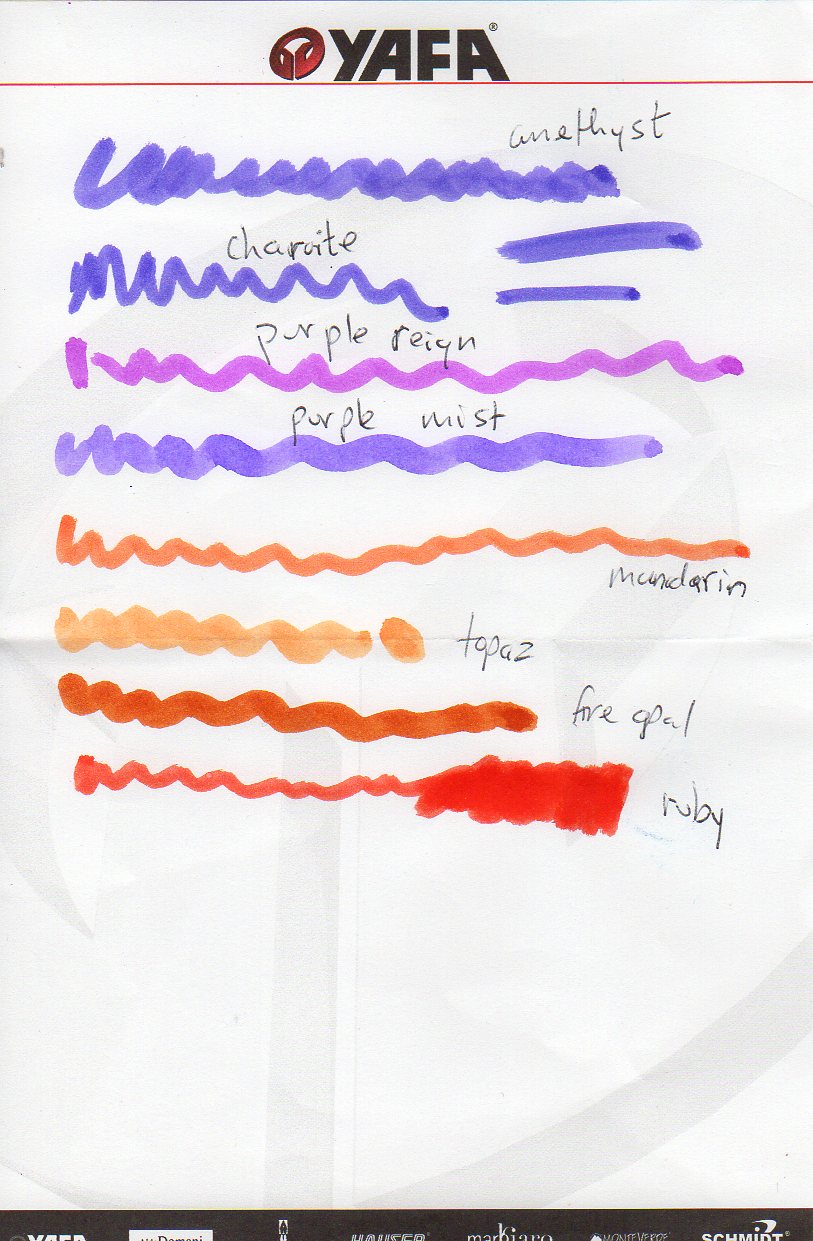 YAFA®
amethyst
charoite
purple reign
purple mist
mandarin
topaz
fire opal
ruby
YAFA HAUSER® marbiaro MONTEVERDE® SCHMIDT®